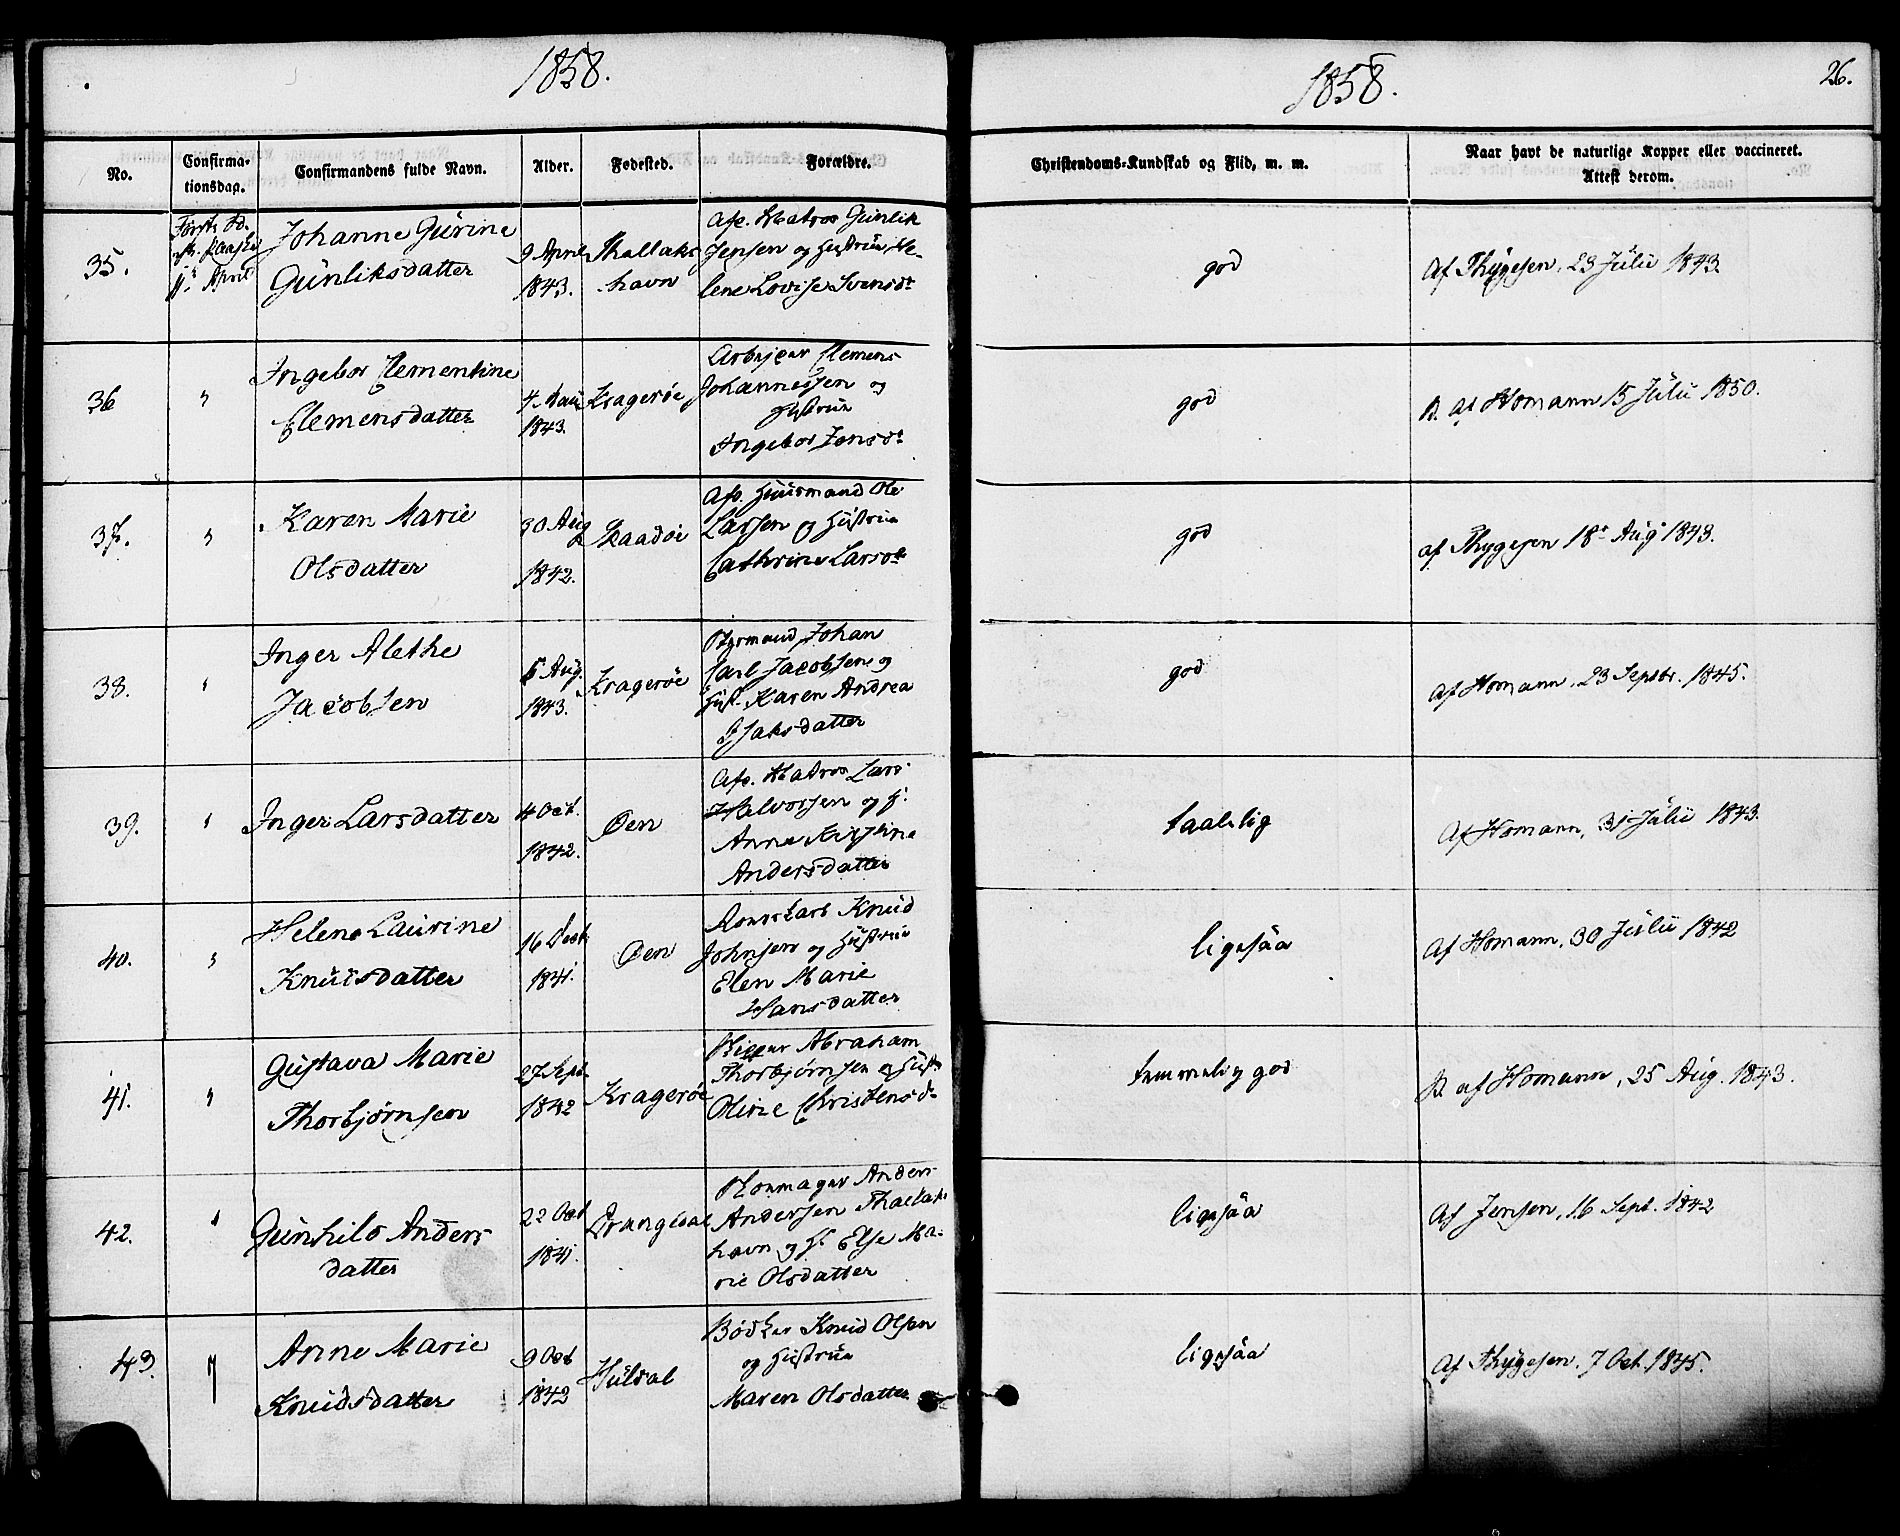 1858.
1858.
26.
No.
Confirma-
tionsdag.
Confirmandens fulde Navn.
Alder.
Fødested.
Forældre.
Christendoms-Kundskab og Flid, m. m.
Naar havt de naturlige Kopper eller vaccineret.
Attest derom.
35.
April
Johanne Gurine
Gunliksdatter
9 April
1843.
Thallaks
havn
Afd. Matros Gunlik
Jensen og Hustrue He-
lene Lovise Svensdr
god
Af Thygesen, 23 Julii 1843.
36
"
Ingebor Clementine
Clemensdatter
4
1843.
Kragerøe
Arbejder Clemens
Johannessen og
Hustrue
Ingebor Jensdr
god
B. af Homann 15 Julii 1850.
37.
"
Karen Marie
Olsdatter
30 Aug
1842.
Skaadøe
Afd. Huusmand Ole
Larsen og Hustrue
Cathrine Larsdr
god
af Thygesen 18r Aug 1843.
38.
"
Inger Alethe
Jacobsen
Aug.
1843.
Kragerøe
Styrmand Johan
Carl Jacobsen og
Hust. Karen Andrea
Isaksdatter
god
af Homann, 23 Septbr. 1845.
39.
"
Inger Larsdatter
4 Oct.
1842.
Øen
Afd. Matros Lars
Halvorsen og H.
Anne Kirstine
Andersdatter
taalelig
Af Homann, 31 Julii 1843.
40.
"
Helene Laurine
Knudsdatter
16 Decb
1841.
Øen
Knud
Johnsen og Hustrue
Elen Marie
Hansdatter
ligesaa
Af Homann, 30 Julii 1842
41.
"
Gustava Marie
Thorbjørnsen
27 Sept.
1842
Kragerøe
Skipper Abraham
Thorbjørnsen og Hust.
Oline Christensd.
temmelig god
B. af Homann, 25 Aug. 1843.
42.
"
Gunhild Anders
datter
22 Oct
1841.
Drangedal
Skomager Anders
Andersen Thallaks
havn og H. Else Ma-
rie Olsdatter
ligesaa
Af Jensen, 16 Sept. 1842
43.
"
Anne Marie
Knudsdatter
9 Oct
1842
Huldal
Bødker Knud Olsen
og Hustrue
Maren Olsdatter
ligesaa
Af Thygesen, 7 Oct. 1845.